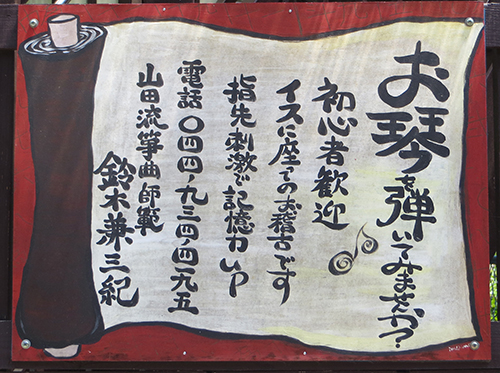 お琴を弾いてみませんか?
初心者歓迎
イスに座てのお稽古です
指先刺激で記憶力UP
電話〇四四・九三四・四一九五
山田流箏曲師範
鈴木兼三紀